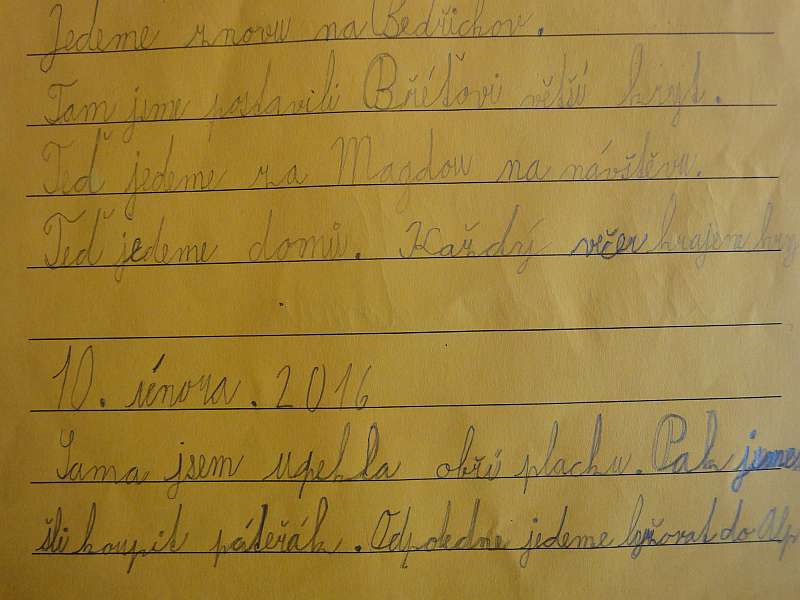 Jedeme znovu na Bedřichov.
Tam jsme postavili Břéťovi větší kryt.
Teď jedeme za Magdou na návštěvu.
Teď jedeme domů. Každý večer hrajeme hry
10. února. 2016
Sama jsem upekla obří placku. Pak jsme
šli koupit páteřák. Odpoledne jedeme lyžovat do Alp